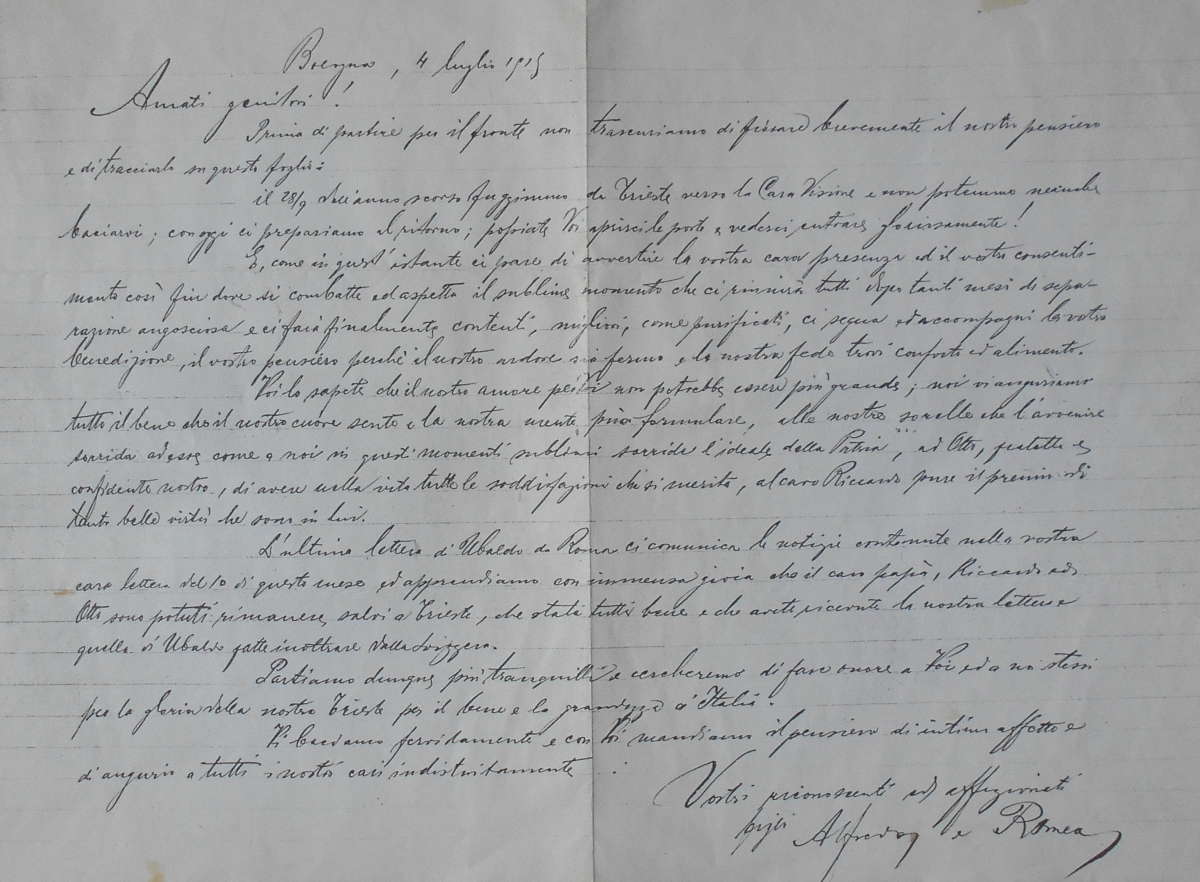 Bologna, 4 luglio 1915
Amati genitori!
Prima di partire per il fronte non trascuriamo di fissare brevemente il nostro pensiero
e di tracciarlo su questo foglio:
il 28/9 dell'anno scorso fuggimmo da Trieste verso la Cara Visione e non potemmo neanche
baciarvi; con oggi ci prepariamo al ritorno; possiate Voi aprirci le porte e vederci entrare
E, come in quest'istante ci pare di avvertire la vostra cara presenza ed il vostro consenti-
mento così fin dove si combatte ed aspetta il sublime momento che ci riunirà tutti dopo tanti mesi di sepa-
razione angosciosa e ci farà finalmente contenti, migliori, come purificati, ci segua ed accompagni la vostra
benedizione, il vostro pensiero perchè il nostro ardore sia fermo e la nostra fede trovi conforto ed alimento.
Voi lo sapete che il nostro amore per Voi non potrebbe essere più grande; noi vi auguriamo
tutto il bene che il nostro cuore sente e la nostra mente può formulare, alle nostre sorelle che l'avvenire
sorrida ad esse come a noi in questi momenti sublimi sorride l'ideale della Patria, ad Otto, fratello e
confidente nostro, di avere nella vita tutte le soddisfazioni che si merita, al caro Riccardo pure il premio di
tante belle virtù che sono in lui.
L'ultima lettera di Ubaldo da Roma ci comunica le notizie contenute nella vostra
cara lettera del 10 di questo mese ed apprendiamo con immensa gioia che il caro papà, Riccardo ed
Otto sono potuti rimanere salvi a Trieste, che state tutti bene e che avete ricevute la nostra lettera e
quella di Ubaldo fatte inoltrare dalla Svizzera.
Partiamo dunque più tranquilli e cercheremo di fare onore a Voi ed a noi stessi
per la gloria della nostra Trieste per il bene e la grandezza d'Italia.
Vi baciamo fervidamente e con Voi mandiamo il pensiero di intimo affetto e
di augurio a tutti i nostri cari indistintamente
Vostri riconoscenti ed affezionati
figli Alfredo e Romeo